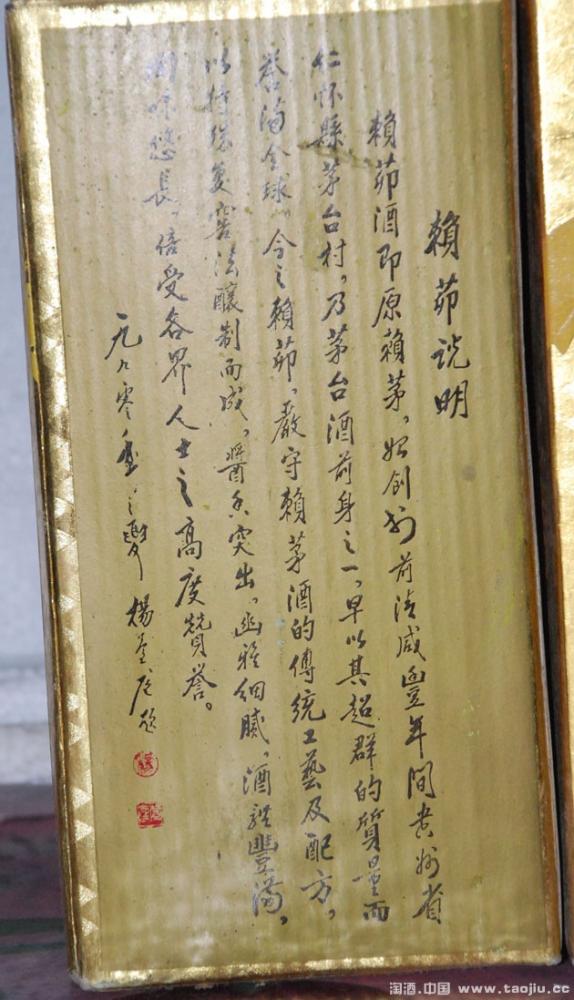 賴茆说明
賴茆酒即原賴茅,始创於前清咸豐年間贵州省
仁怀縣茅台村,乃茅台酒前身之一,早以其超群的質量而
誉满全球。今之賴茆,嚴守賴茅酒的傳统工藝及配方,
以特殊复窖法釀制而成,醬香突出,幽雅细腻,酒體豐满,
回味悠長,倍受各界人士之高度贊誉。
一九九零年之夏 楊題
淘酒.中国 www.taojiu.cc